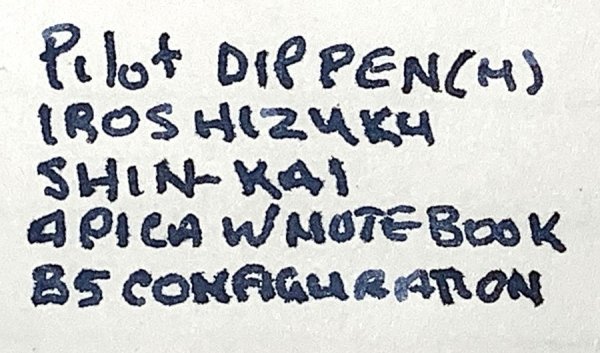 Pilot DIPPEN(M)
IROSHIZUKU
SHIN-KAI
APICA W NOTEBOOK
B5 CONFIGURATION